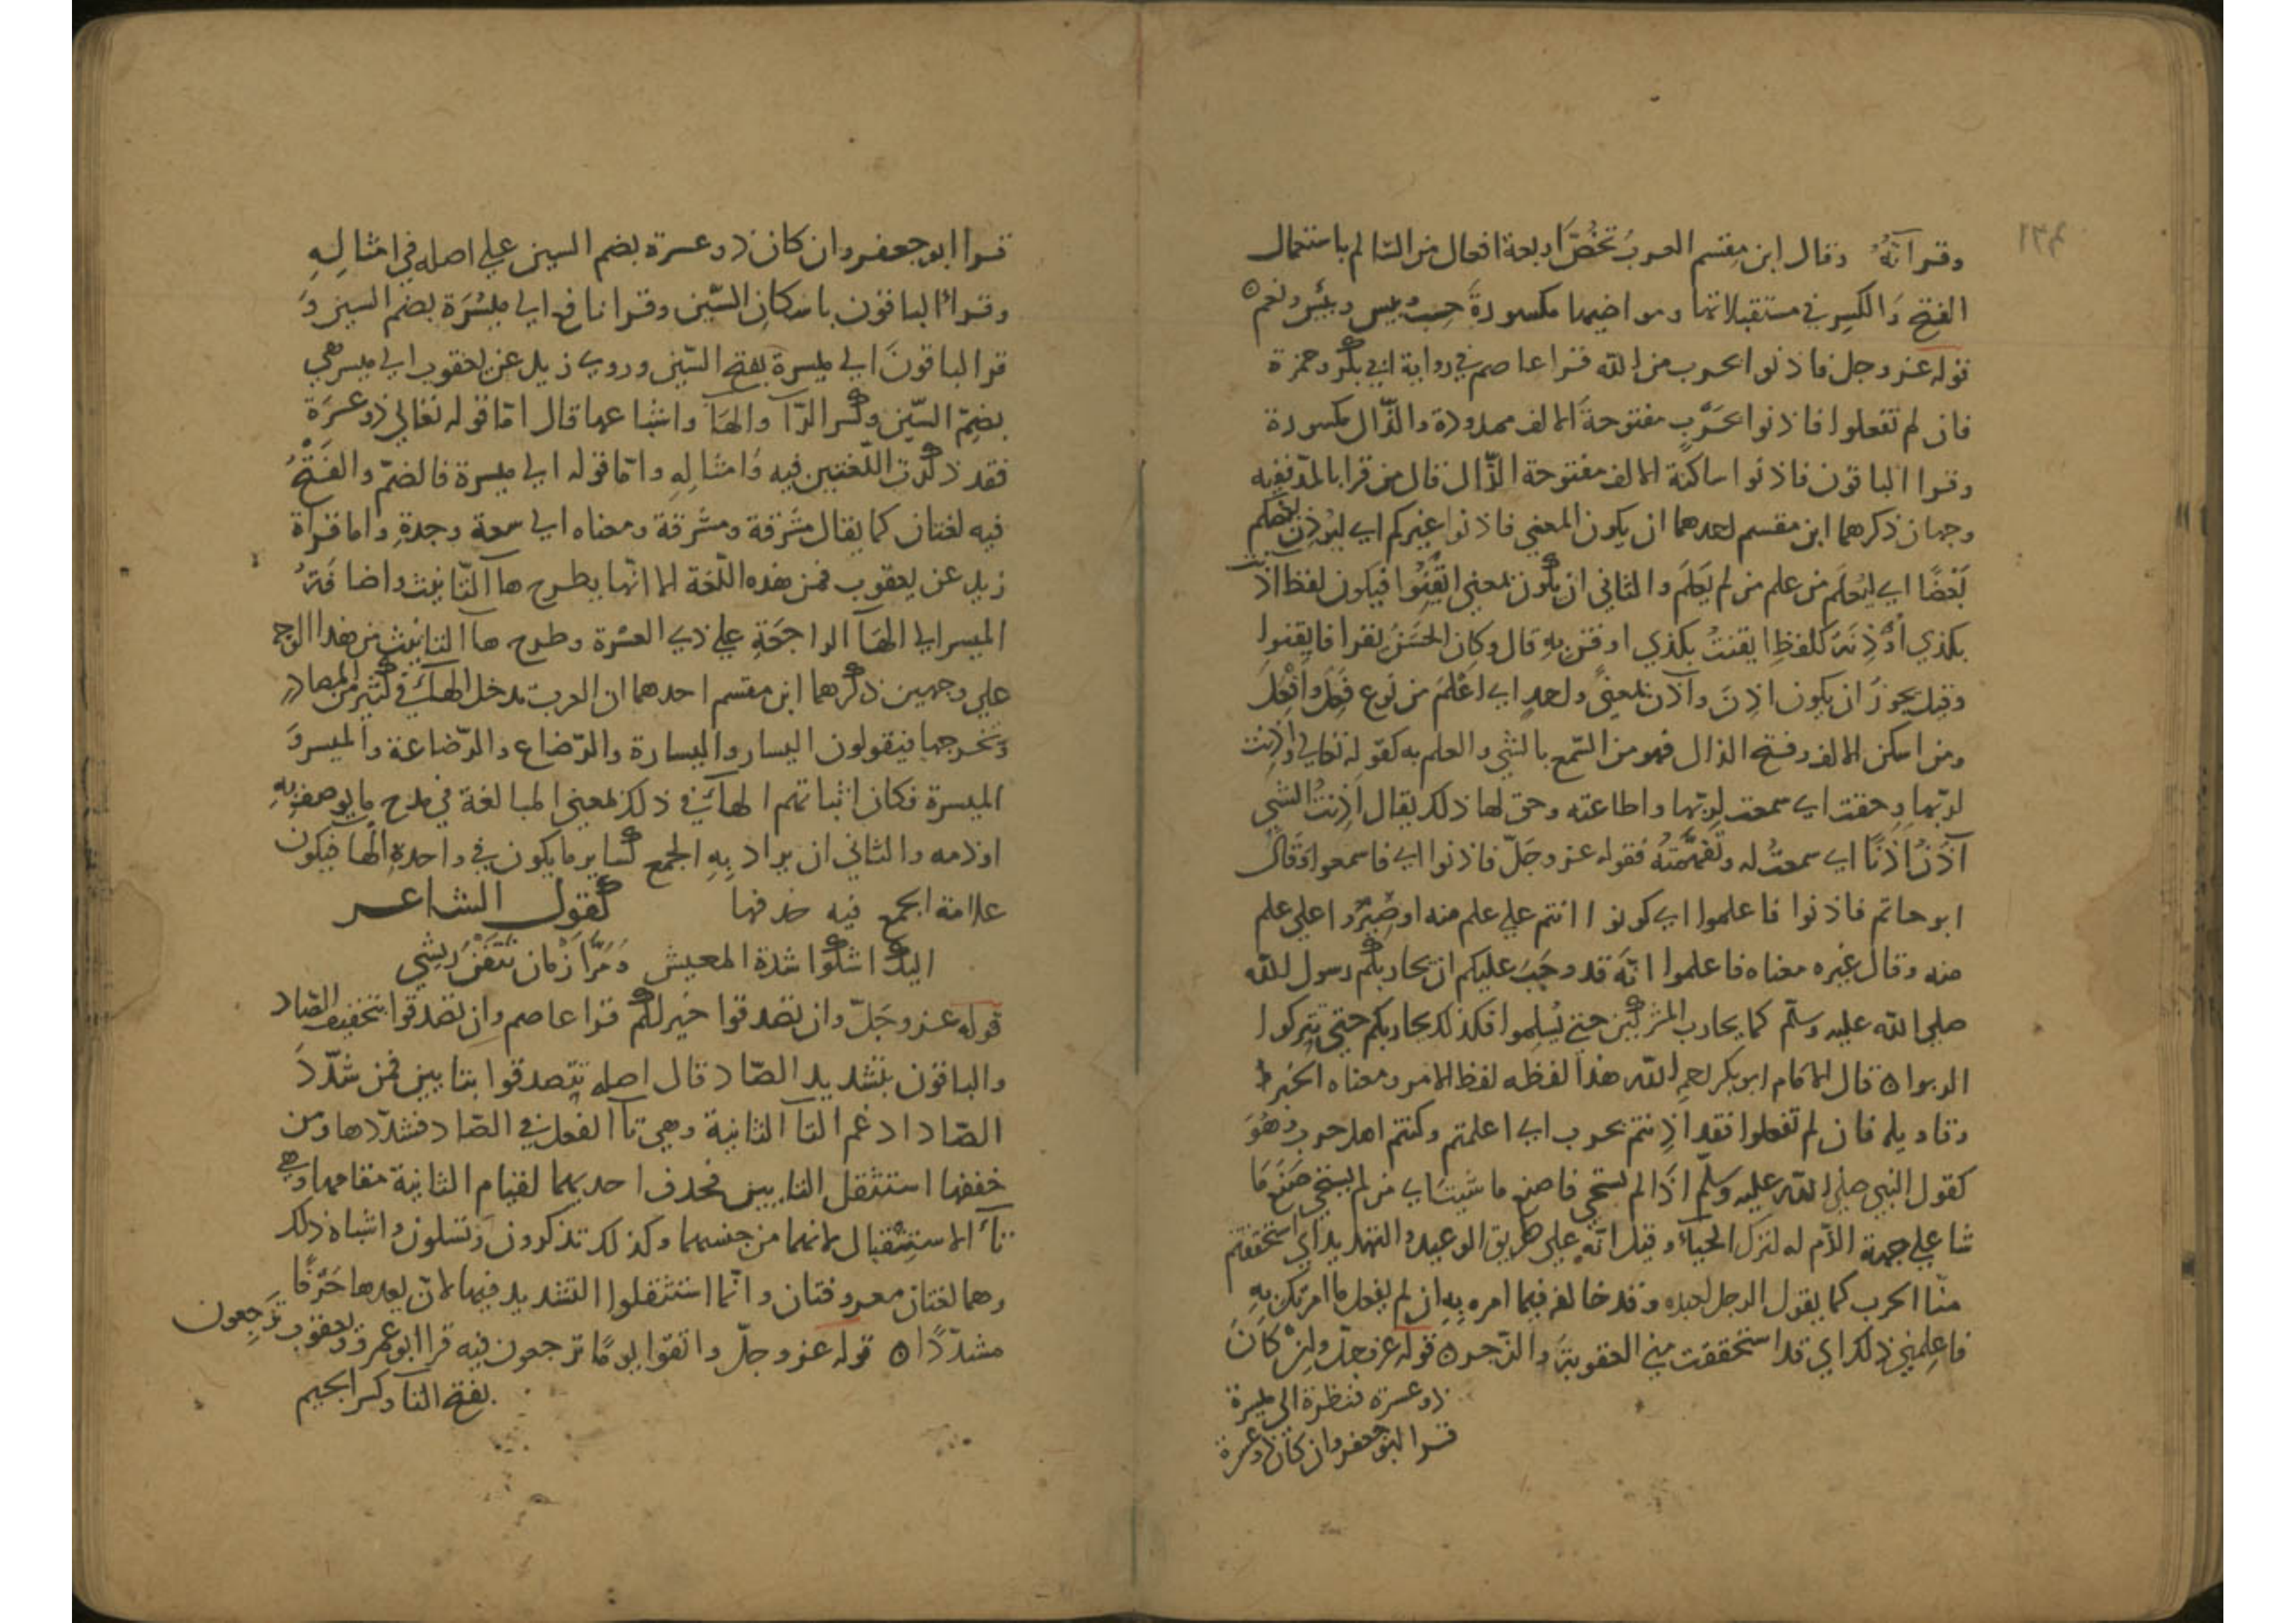 وقرآنه وقال ابن مقسم العرب تخص اربعة افعال من السالم باستعمال
الفتح والكسر في مستقبلاتها ومواضيها مكسورة حسب ويبس وبئس ونعم
قوله عز وجل فاذنوا بحرب من الله قرا عاصم في رواية ابي بكر وحمزة
فان لم تفعلوا فاذنوا بحرب مفتوحة الالف ممدودة والذال مكسورة
وقرا الباقون فاذنوا ساكنة الالف مفتوحة الذال قال من قرا بالمد ففيه
وجهان ذكرهما ابن مقسم احدهما ان يكون المعنى فاذنوا غيركم اي ليؤذن بعضكم
بعضًا اي ليُعلم من علم من لم يَعلم والثاني ان يكون بمعنى ايقنوا فيكون لفظ اذنت
بكذي أوذنه كلفظ ايقنت بكذي اوقن به قال وكان الحسن يقرا فايقنوا
وقيل يجوز ان يكون اذن وآذن بمعنى واحد اي اعلم من نوع فعل وافعل
ومن اسكن الالف وفتح الذال فهو من السمع بالشي والعلم به كقوله تعالى واذنت
لربها وحقت اي سمعت لربها واطاعته وحق لها ذلك يقال اذنت الشي
آذن اذنًا اي سمعت له وتفهمته فقوله عز وجل فاذنوا اي فاسمعوا وقال
ابو حاتم فاذنوا فاعلموا اي كونوا انتم على علم منه او صيروا على علم
منه وقال غيره معناه فاعلموا انه قد وجب عليكم ان يحاربكم رسول الله
صلى الله عليه وسلم كما يحارب المشركين حتى يُسلموا فكذلك يحاربكم حتى تتركوا
الربوا ه قال الامام ابو بكر رحمه الله هذا لفظه لفظ الامر ومعناه الخبر
وتاويله فان لم تفعلوا فقد اذنتم بحرب اي اعلمتم وكنتم اهل حرب وهو
كقول النبي صلى الله عليه وسلم اذا لم تستحي فاصنع ما شيت اي من لم يستحي صنع ما
شا على جهة الذم له لترك الحياء وقيل انه على طريق الوعيد والتهديد اي استحققتم
منا الحرب كما يقول الرجل لعبده وقد خالفه فيما امره به ان لم يفعل ما امرتك به
فاعلمني ذلك اي قد استحققت مني العقوبة والزجر ه قوله عز وجل وان كان
ذو عسرة فنظرة الى ميسرة
قرا ابو جعفر وان كان ذو عسرة
قرا ابو جعفر وان كان ذو عسرة بضم السين على اصله في امثاله
وقرا الباقون باسكان السين وقرا نافع الى ميسُرة بضم السين و
قرا الباقون الى ميسرة بفتح السين وروى زيد عن يعقوب الى ميسرهي
بضم السين وكسر الرآ والهآ واشباعها قال اما قوله تعالى ذو عسرة
فقد ذكرت اللغتين فيه وامثاله واما قوله الى ميسرة فالضم والفتح
فيه لغتان كما يقال مشرقة ومشرقة ومعناه الى سعة وجدة واما قراة
زيد عن يعقوب فمن هذه اللغة الا انها بطرح هآ التانيث واضافة
الميسر الى الهآ الراجعة على ذي العسرة وطرح هآ التانيث من هذا الوجه
على وجهين ذكرهما ابن مقسم احدهما ان العرب تدخل الهاء في كثير من المصادر
وتخرجها فيقولون اليسار واليسارة والرضاع والرضاعة والميسر و
الميسرة فكان اثباتهم الهاء في ذلك لمعنى المبالغة في مدح ما يوصف به
او ذمه والثاني ان يراد به الجمع كساير ما يكون في واحدة الها فيكون
علامة الجمع فيه حذفها كقول الشاعر
اليك اشكوا شدة المعيش ومرّ ازمان نتفن ريشي
قوله عز وجل وان تصدقوا خير لكم قرا عاصم وان تصدقوا بتخفيف الصاد
والباقون بتشديد الصاد قال اصله تتصدقوا بتايين فمن شدّد
الصاد ادغم التآ الثانية وهي تآ الفعل في الصاد فشددها ومن
خففها استثقل التايين فحذف احديهما لقيام الثانية مقامها وهي
تآء الاستقبال لانهما من جنسهما وكذلك تذكرون وتسلون واشباه ذلك
وهما لغتان معروفتان وانما استثقلوا التشديد فيها لان بعدها حرفًا
مشدّدًا ه قوله عز وجل واتقوا يومًا ترجعون فيه قرا ابو عمرو ويعقوب تَرجِعون
بفتح التآ وكسر الجيم